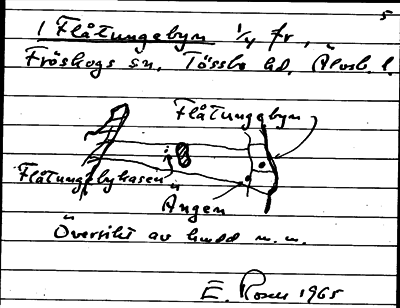 5
1 Flåtungebyn 1/4 fr,
Fröskogs sn, Tössbo hd, Älvsb. l.
Flåtungebyn
Flåtungebyhasen
Ängen
Översikt av hmdd m.m.
E. Rosell 1965